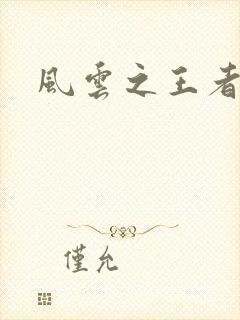 風雲之王者
僅允